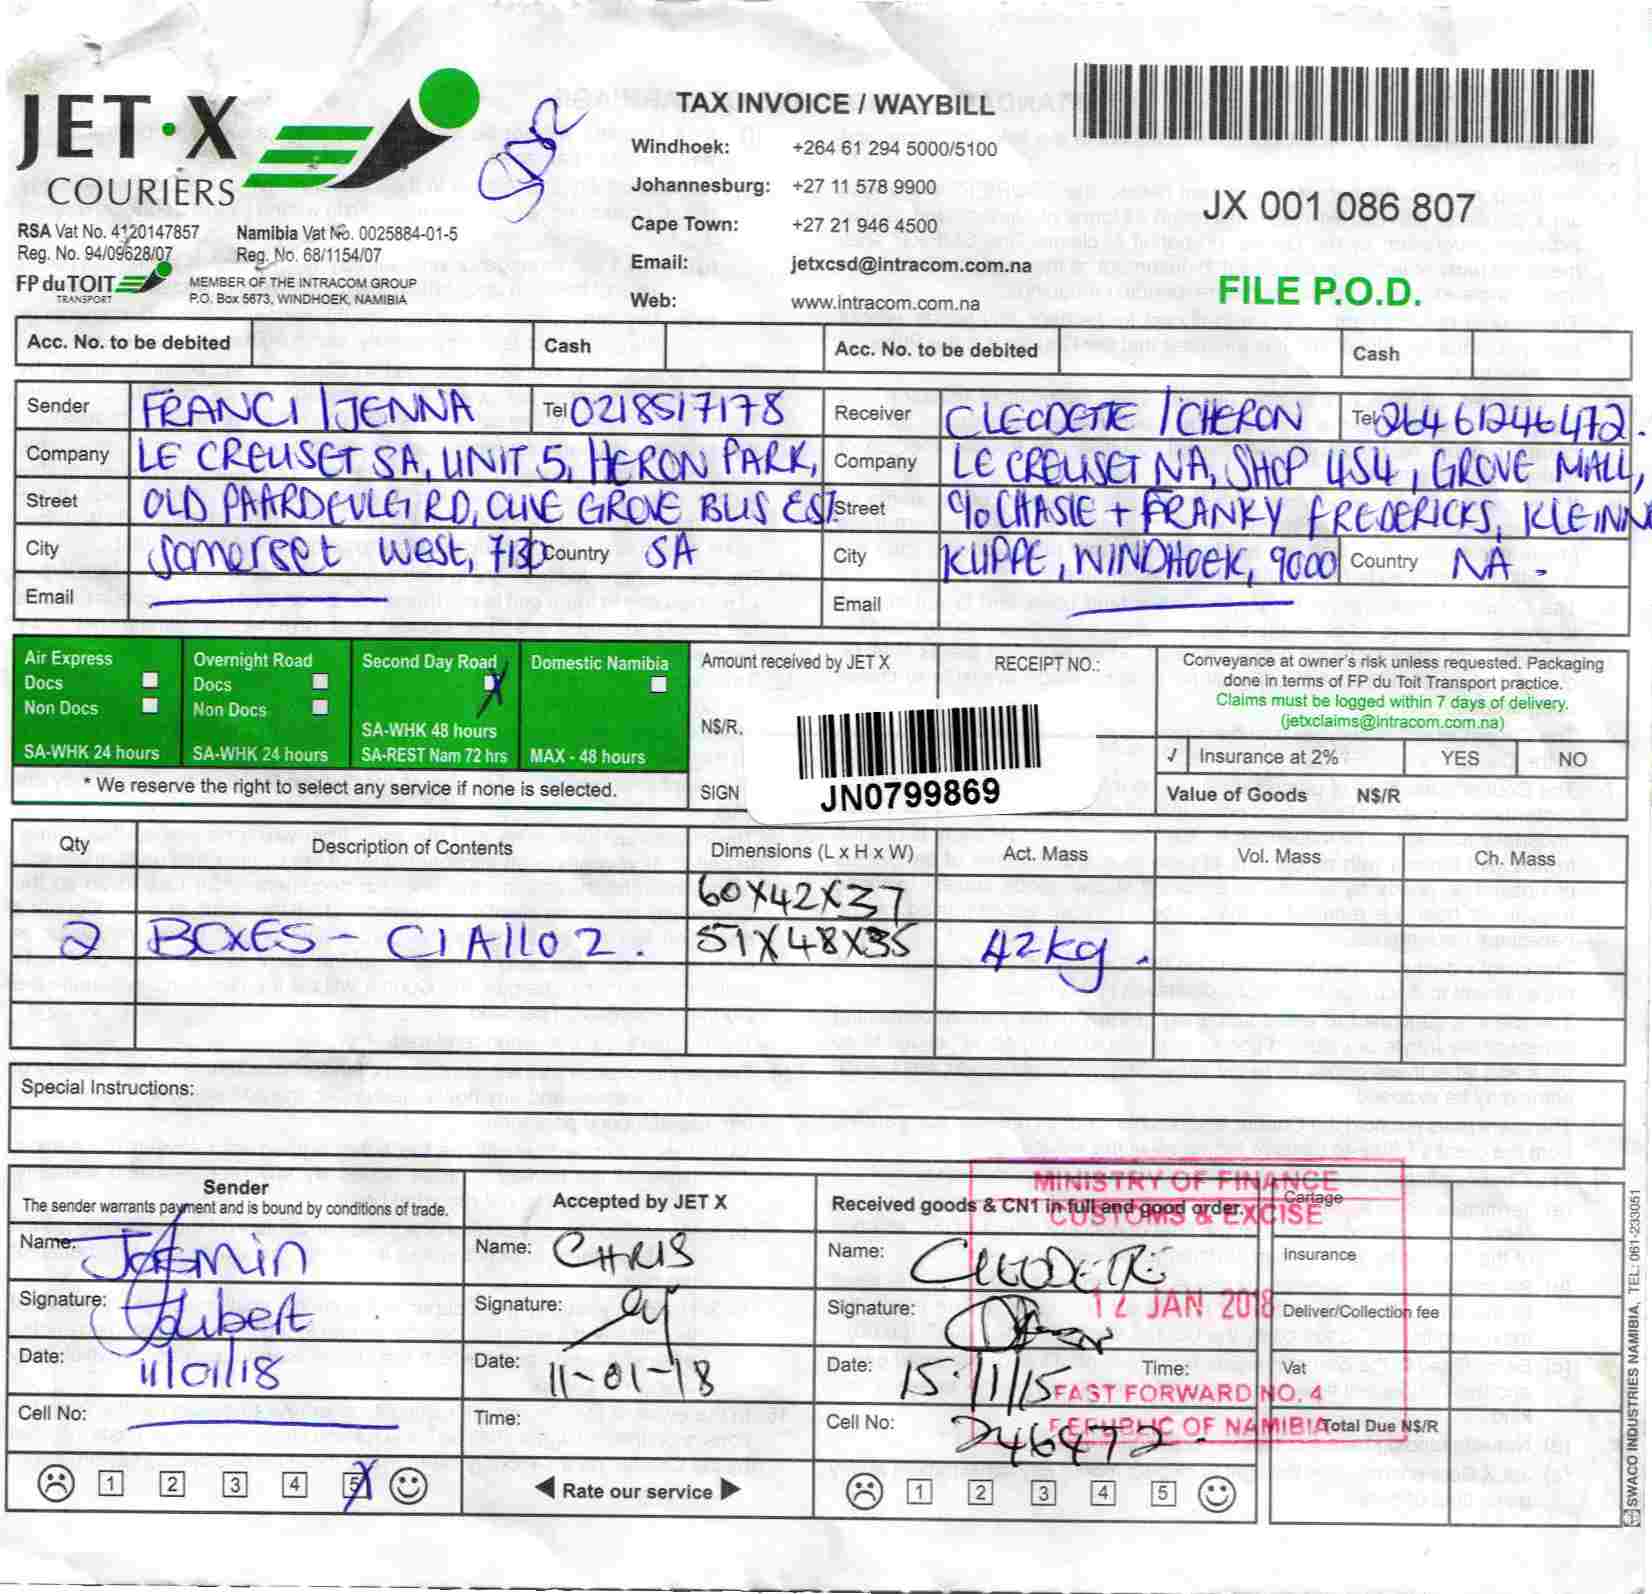 JET·X
COURIERS
RSA Vat No. 4120147857
Reg. No. 94/09628/07
Namibia Vat No. 0025884-01-5
Reg. No. 68/1154/07
FP du TOIT
TRANSPORT
MEMBER OF THE INTRACOM GROUP
P.O. Box 5673, WINDHOEK, NAMIBIA
TAX INVOICE / WAYBILL
Windhoek: +264 61 294 5000/5100
Johannesburg: +27 11 578 9900
Cape Town: +27 21 946 4500
Email: jetxcsd@intracom.com.na
Web: www.intracom.com.na
JX 001 086 807
FILE P.O.D.
Acc. No. to be debited Cash Acc. No. to be debited Cash
Sender FRANCI / JENNA Tel 0218517178
Company LE CREUSET SA, UNIT 5, HERON PARK,
Street OLD PAARDEVLEI RD, CLIVE GROVE BUS EST.
City Somerset West, 7130 Country SA
Email
Receiver CLEODETTE / CHERON Tel 264 61246472.
Company LE CREUSET NA, SHOP 454, GROVE MALL,
Street c/o CHASIE + FRANKY FREDERICKS, KLEINN
City KUPPE, WINDHOEK, 9000 Country NA.
Email
Air Express
Docs
Non Docs
SA-WHK 24 hours
Overnight Road
Docs
Non Docs
SA-WHK 24 hours
Second Day Road
X
SA-WHK 48 hours
SA-REST Nam 72 hrs
Domestic Namibia
MAX - 48 hours
* We reserve the right to select any service if none is selected.
Amount received by JET X RECEIPT NO.:
N$/R.
SIGN
JN0799869
Conveyance at owner's risk unless requested. Packaging
done in terms of FP du Toit Transport practice.
Claims must be logged within 7 days of delivery.
(jetxclaims@intracom.com.na)
√ Insurance at 2% YES NO
Value of Goods N$/R
Qty Description of Contents Dimensions (L x H x W) Act. Mass Vol. Mass Ch. Mass
60X42X37
2 BOXES - CIA1102. 51X48X35 42kg.
Special Instructions:
Sender
The sender warrants payment and is bound by conditions of trade.
Name: Jasmin
Signature: Joubert
Date: 11/01/18
Cell No:
1 2 3 4 5
Accepted by JET X
Name: CHRIS
Signature:
Date: 11-01-18
Time:
◀ Rate our service ▶
Received goods & CN1 in full and good order.
Name: CLEODETTE
Signature:
Date: 15/1/15 Time:
Cell No: 246472.
1 2 3 4 5
MINISTRY OF FINANCE
CUSTOMS & EXCISE
12 JAN 2018
FAST FORWARD NO. 4
REPUBLIC OF NAMIBIA
Cartage
Insurance
Deliver/Collection fee
Vat
Total Due N$/R
SWACO INDUSTRIES NAMIBIA, TEL: 061-233051